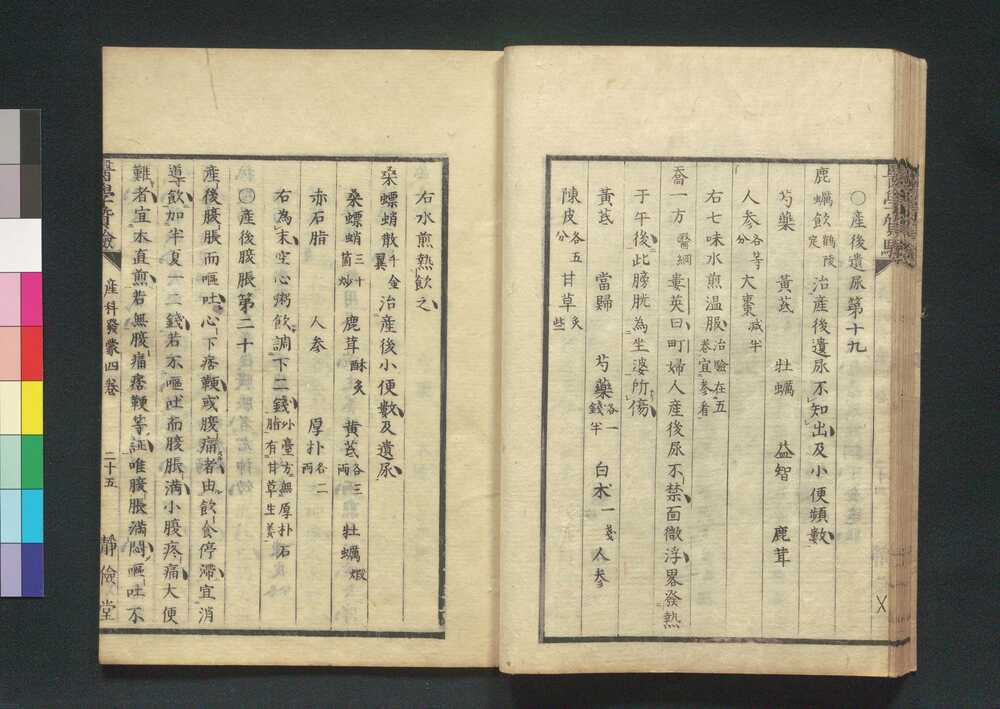 ○產後遺尿第十九
鹿蠣飲 鶴陵定 治產後遺尿不知出及小便頻數
芍藥 黃芪 牡蠣 益智 鹿茸
人参各等分 大棗減半
右七味水煎温服 治驗在五卷宜參看
喬一方 醫綱 婁英曰町婦人產後尿不禁面微浮畧發熱
于午後此膀胱為坐婆所傷
黃芪 當歸 芍藥各一錢半 白朮一戔 人参
陳皮各五分 甘草炙些
右水煎熱飲之
桑螵蛸散千金翼 治產後小便數及遺尿
桑螵蛸三十箇炒 鹿茸酥炙 黃芪各三兩 牡蠣煅
赤石脂 人参 厚朴各二兩
右為末空心粥飲調下二錢 外臺方無厚朴石脂有甘草生姜
○產後腹脹第二十
產後腹脹而嘔吐心下痞鞕或腹痛者由飲食停滯宜消
導飲加半夏一二錢若不嘔吐而腹脹滿小腹疼痛大便
難者宜本直煎若無腹痛痞鞕等証唯腹脹滿悶嘔吐不
產科發蒙四卷 二十五 靜儉堂